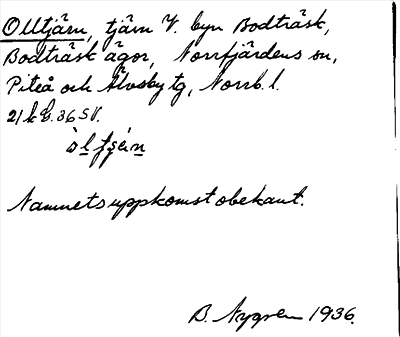 Olltjärn, tjärn V. byn Bodträsk,
Bodträsk ägor, Norrfjärdens sn,
Piteå och Älvsby tg, Norrb. l.
21 k b. 36 SV.
Namnets uppkomst obekant.
B. Nygren 1936.